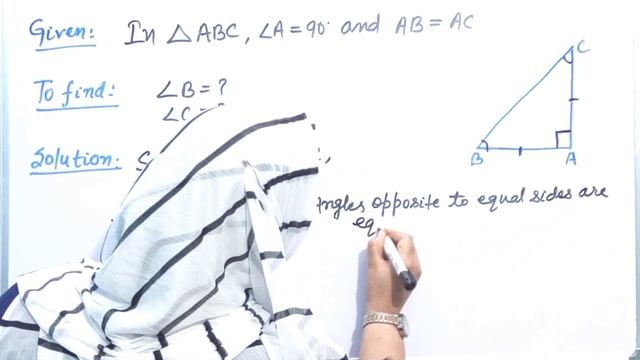 Given: In △ABC, ∠A = 90° and AB = AC
To find: ∠B = ?
∠C = ?
Solution: S
angles opposite to equal sides are
eq
C
B
A